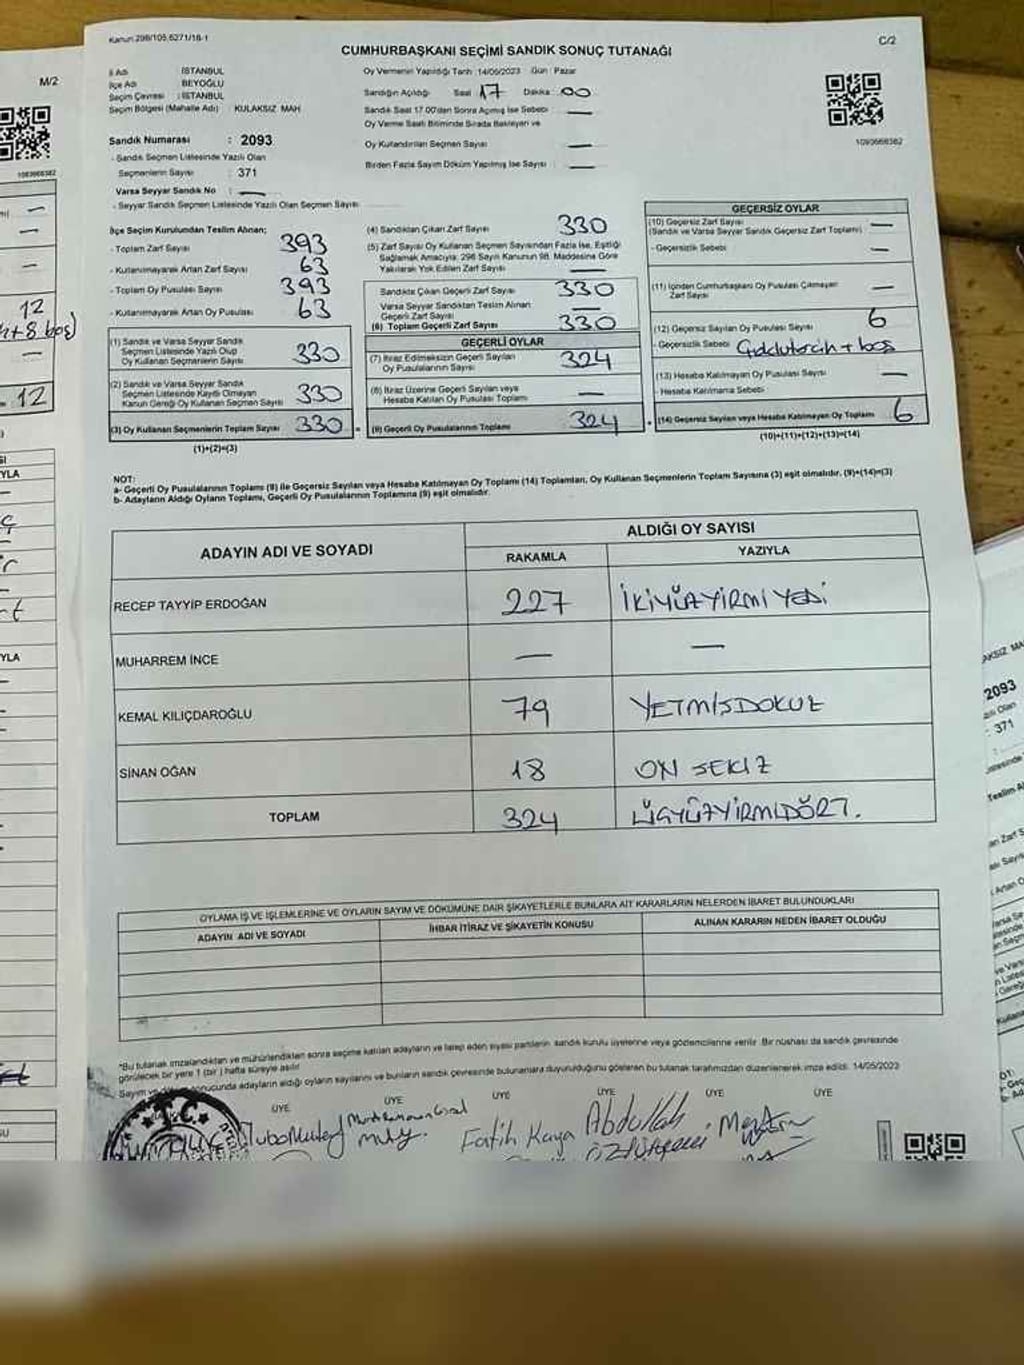 Kanun 298/105,6271/18-1
C/2
CUMHURBAŞKANI SEÇİMİ SANDIK SONUÇ TUTANAĞI
İl Adı İSTANBUL
İlçe Adı BEYOĞLU
Seçim Çevresi : İSTANBUL
Seçim Bölgesi (Mahalle Adı) : KULAKSIZ MAH
Oy Vermenin Yapıldığı Tarih : 14/05/2023 Gün : Pazar
Sandığın Açıldığı Saat 17 Dakika : 00
Sandık Saat 17.00'den Sonra Açılmış İse Sebebi —
Oy Verme Saati Bitiminde Sırada Bekleyen ve
Oy Kullandırılan Seçmen Sayısı —
Birden Fazla Sayım Döküm Yapılmış İse Sayısı —
1093666382
Sandık Numarası : 2093
- Sandık Seçmen Listesinde Yazılı Olan
Seçmenlerin Sayısı : 371
Varsa Seyyar Sandık No : —
- Seyyar Sandık Seçmen Listesinde Yazılı Olan Seçmen Sayısı
İlçe Seçim Kurulundan Teslim Alınan;
- Toplam Zarf Sayısı 393
- Kullanılmayarak Artan Zarf Sayısı 63
- Toplam Oy Pusulası Sayısı 393
- Kullanılmayarak Artan Oy Pusulası 63
(1) Sandık ve Varsa Seyyar Sandık
Seçmen Listesinde Yazılı Olup
Oy Kullanan Seçmenlerin Sayısı 330
(2) Sandık ve Varsa Seyyar Sandık
Seçmen Listesinde Kayıtlı Olmayan
Kanun Gereği Oy Kullanan Seçmen Sayısı 330
(3) Oy Kullanan Seçmenlerin Toplam Sayısı 330
(1)+(2)=(3)
(4) Sandıktan Çıkan Zarf Sayısı 330
(5) Zarf Sayısı Oy Kullanan Seçmen Sayısından Fazla İse, Eşitliği
Sağlamak Amacıyla; 298 Sayılı Kanunun 98. Maddesine Göre
Yakılarak Yok Edilen Zarf Sayısı —
Sandıkta Çıkan Geçerli Zarf Sayısı 330
Varsa Seyyar Sandıktan Teslim Alınan
Geçerli Zarf Sayısı —
(6) Toplam Geçerli Zarf Sayısı 330
GEÇERLİ OYLAR
(7) İtiraz Edilmeksizin Geçerli Sayılan
Oy Pusulalarının Sayısı 324
(8) İtiraz Üzerine Geçerli Sayılan veya
Hesaba Katılan Oy Pusulası Toplamı —
(9) Geçerli Oy Pusulalarının Toplamı 324
GEÇERSİZ OYLAR
(10) Geçersiz Zarf Sayısı
(Sandık ve Varsa Seyyar Sandık Geçersiz Zarf Toplamı) —
- Geçersizlik Sebebi —
(11) İçinden Cumhurbaşkanı Oy Pusulası Çıkmayan
Zarf Sayısı —
(12) Geçersiz Sayılan Oy Pusulası Sayısı 6
- Geçersizlik Sebebi + boş
(13) Hesaba Katılmayan Oy Pusulası Sayısı —
- Hesaba Katılmama Sebebi
(14) Geçersiz Sayılan veya Hesaba Katılmayan Oy Toplamı 6
(10)+(11)+(12)+(13)=(14)
NOT:
a- Geçerli Oy Pusulalarının Toplamı (9) ile Geçersiz Sayılan veya Hesaba Katılmayan Oy Toplamı (14) Toplamları, Oy Kullanan Seçmenlerin Toplam Sayısına (3) eşit olmalıdır. (9)+(14)=(3)
b- Adayların Aldığı Oyların Toplamı, Geçerli Oy Pusulalarının Toplamına (9) eşit olmalıdır.
ADAYIN ADI VE SOYADI ALDIĞI OY SAYISI
RAKAMLA YAZIYLA
RECEP TAYYİP ERDOĞAN 227 İKİYÜZYİRMİYEDİ
MUHARREM İNCE — —
KEMAL KILIÇDAROĞLU 79 YETMİŞDOKUZ
SİNAN OĞAN 18 ON SEKİZ
TOPLAM 324 ÜÇYÜZYİRMİDÖRT.
OYLAMA İŞ VE İŞLEMLERİNE VE OYLARIN SAYIM VE DÖKÜMÜNE DAİR ŞİKAYETLERLE BUNLARA AİT KARARLARIN NELERDEN İBARET BULUNDUKLARI
ADAYIN ADI VE SOYADI İHBAR İTİRAZ VE ŞİKAYETİN KONUSU ALINAN KARARIN NEDEN İBARET OLDUĞU
*Bu tutanak imzalandıktan ve mühürlendikten sonra seçime katılan adayların ve talep eden siyasi partilerin sandık kurulu üyelerine veya gözlemcilerine verilir. Bir nüshası da sandık çevresinde
görülecek bir yere 1 (bir) hafta süreyle asılır.
Sayım ve sonucunda adayların aldığı oyların sayılarını ve bunların sandık çevresinde bulunanlara duyurulduğunu gösteren bu tutanak tarafımızdan düzenlenerek imza edildi. 14/05/2023
ÜYE ÜYE ÜYE ÜYE ÜYE
T.C.
Fatih Kaya
Abdullah
M/2
1093666382
12
+8 boş)
12
YLA
YLA
KSIZ MA
2093
: 371